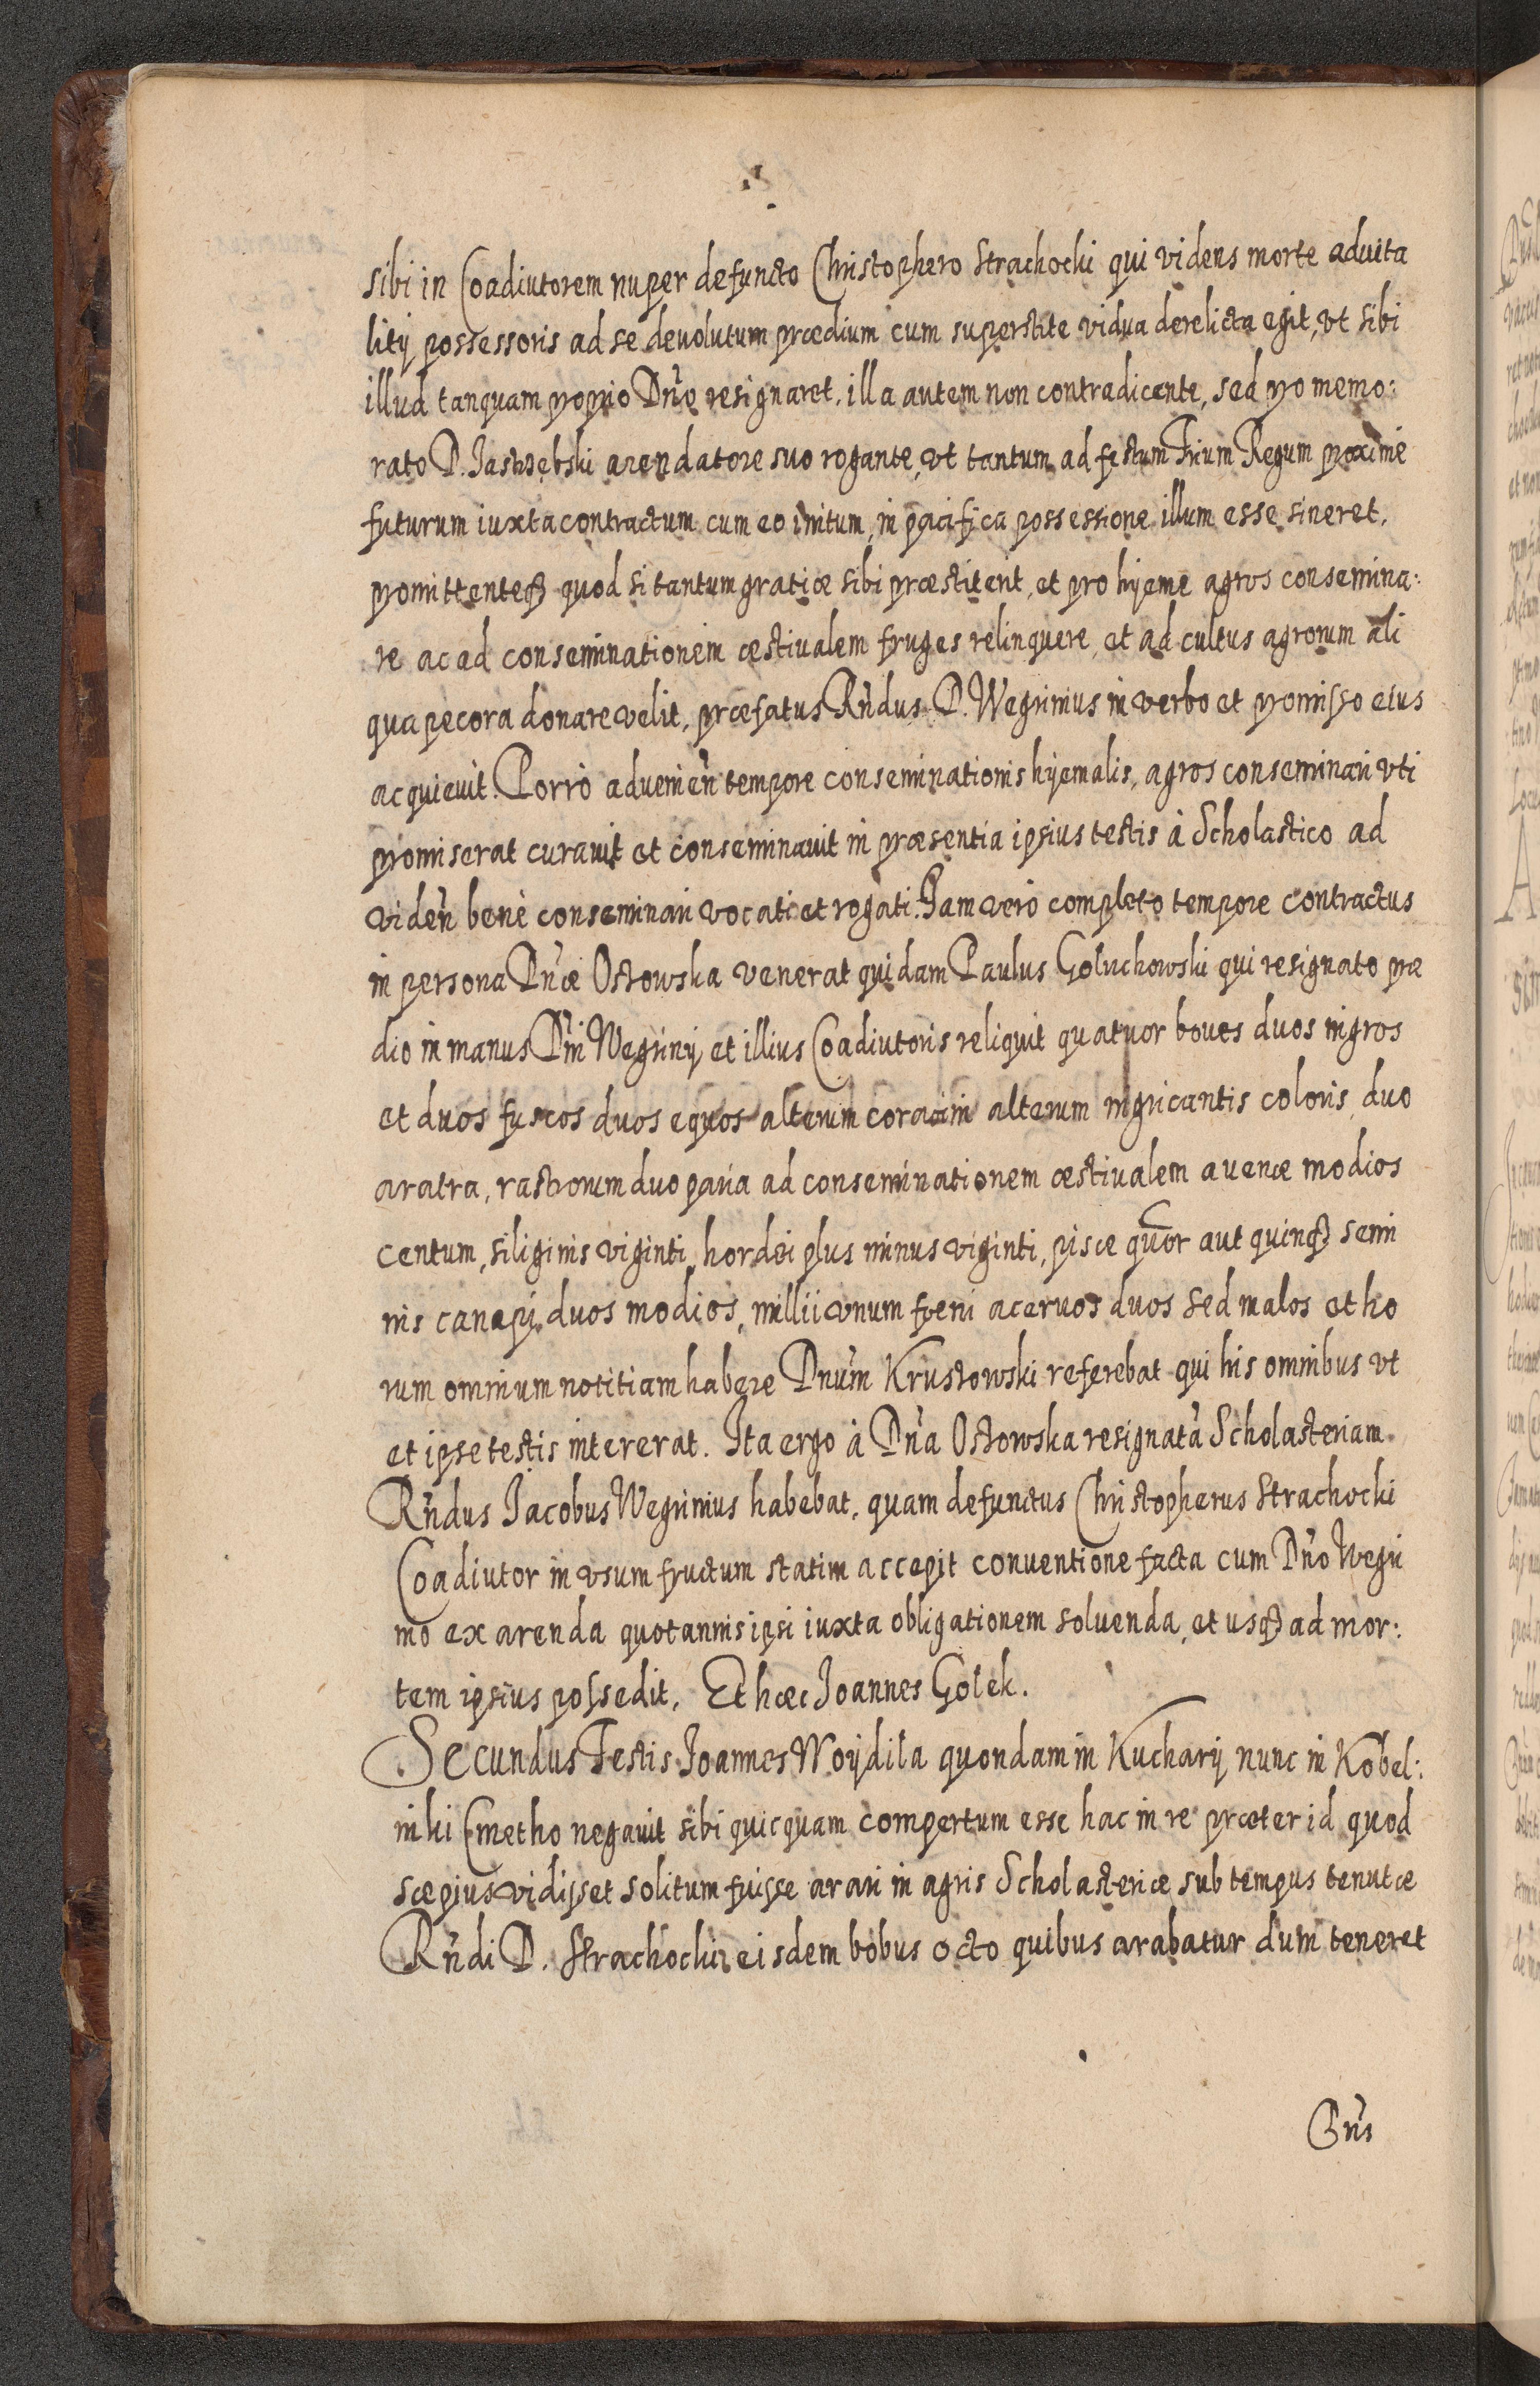 sibi in Coadiutorem nuper defuncto Christophero Strachocki qui videns morte aduita
litij possessoris ad se deuolutum prædium cum superstite vidua derelicta egit, vt sibi
illud tanquam proprio Dn̄o resignaret, illa autem non contradicente, sed pro memo:
rato D. Jastrzębski arendatore suo rogante, vt tantum ad festum Trium Regum proximè
futurum iuxta contractum cum eo initum, in pacifica possessione illum esse sineret,
promittenteq́ꝫ quod si tantum gratiæ sibi præstiterit, et pro hyeme agros consemina:
re ac ad conseminationem æstiualem fruges relinquere, et ad cultus agrorum ali
qua pecora donare velit, præfatus Rn̄dus D. Wegrinius in verbo et promisso eius
acquieuit. Porrò aduenien̄ tempore conseminationis hyemalis, agros conseminari vti
promiserat curauit et conseminauit in præsentia ipsius testis à Scholastico ad
viden̄ benè conseminari vocati et rogati. Jam verò completo tempore contractus
in persona Dn̄æ Ostowska venerat quidam Paulus Goluchowski qui resignato præ
dio in manus Dn̄i Wegrinij et illius Coadiutoris reliquit quatuor boues duos nigros
et duos fuscos duos equos alterum coracini alterum nigricantis coloris, duo
aratra, rastrorum duo paria ad conseminationem æstiualem auenæ modios
centum, siliginis viginti, hordei plus minus viginti, pisæ quor aut quinqꝫ semi
nis canapi duos modios, millii vnum foeni aceruos duos sed malos et ho
rum omnium notitiam habere Dn̄um Krustowski referebat qui his omnibus vt
et ipse testis intererat. Ita ergo à Dn̄a Ostowska resignatā Scholasteriam
Rn̄dus Jacobus Wegrinius habebat, quam defunctus Christopherus Strachocki
Coadiutor in vsum fructum statim accepit conuentione facta cum Dn̄o Wegri
nio ex arenda quotannis ipsi iuxta obligationem soluenda, et usqꝫ ad mor:
tem ipsius possedit. Et hæc Joannes Golek.
Secundus Testis Joannes Woydila quondam in Kuchary nunc in Kobel:
niki Cmetho negauit sibi quicquam compertum esse hac in re præter id quod
sæpius vidisset solitum fuisse arari in agris Scholasteriæ sub tempus tenutæ
Rn̄di D. Strachocki eisdem bobus octo quibus arabatur dum teneret
Gn̄s